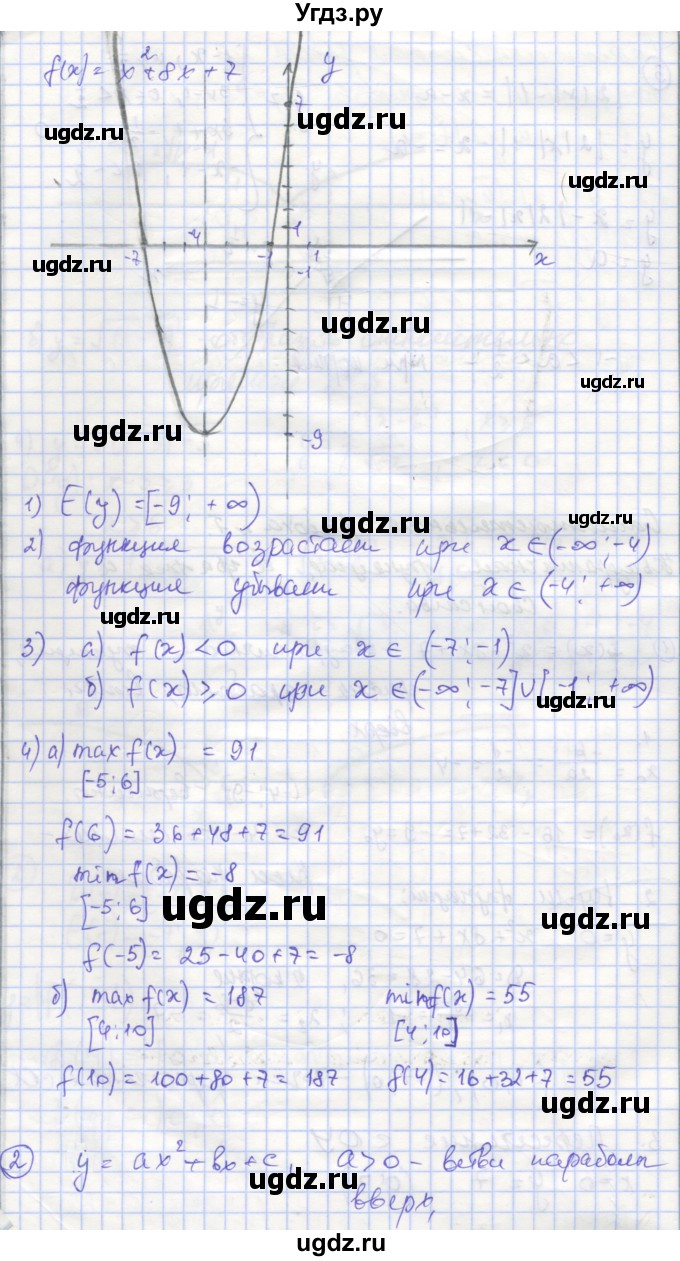 Угдз.ру
f(x) = x²+8x+7
y
7
ugdz.ru
ugdz.ru
ugdz.ru
-7 -4 -1 1 1 x
-1
ugdz.ru
ugdz.ru
ugdz.ru
ugdz.ru
-9
1) E(y) = [-9; +∞)
ugdz.ru
2) функция возрастает при x ∈ (-∞; -4)
функция убывает при x ∈ (-4; +∞)
ugdz.ru
3) а) f(x) < 0 при x ∈ (-7; -1)
б) f(x) ≥ 0 при x ∈ (-∞; -7] ∪ [-1; +∞)
ugdz.ru
4) а) max f(x) = 91
[-5; 6]
f(6) = 36+48+7 = 91
min f(x) = -8
[-5; 6]
ugdz.ru
ugdz.ru
f(-5) = 25-40+7 = -8
б) max f(x) = 187 min f(x) = 55
[4; 10] [4; 10]
f(10) = 100+80+7 = 187 f(4) = 16+32+7 = 55
ugdz.ru
2 y = ax²+bx+c, a>0 - ветви параболы
ugdz.ru
вверх,
ugdz.ru